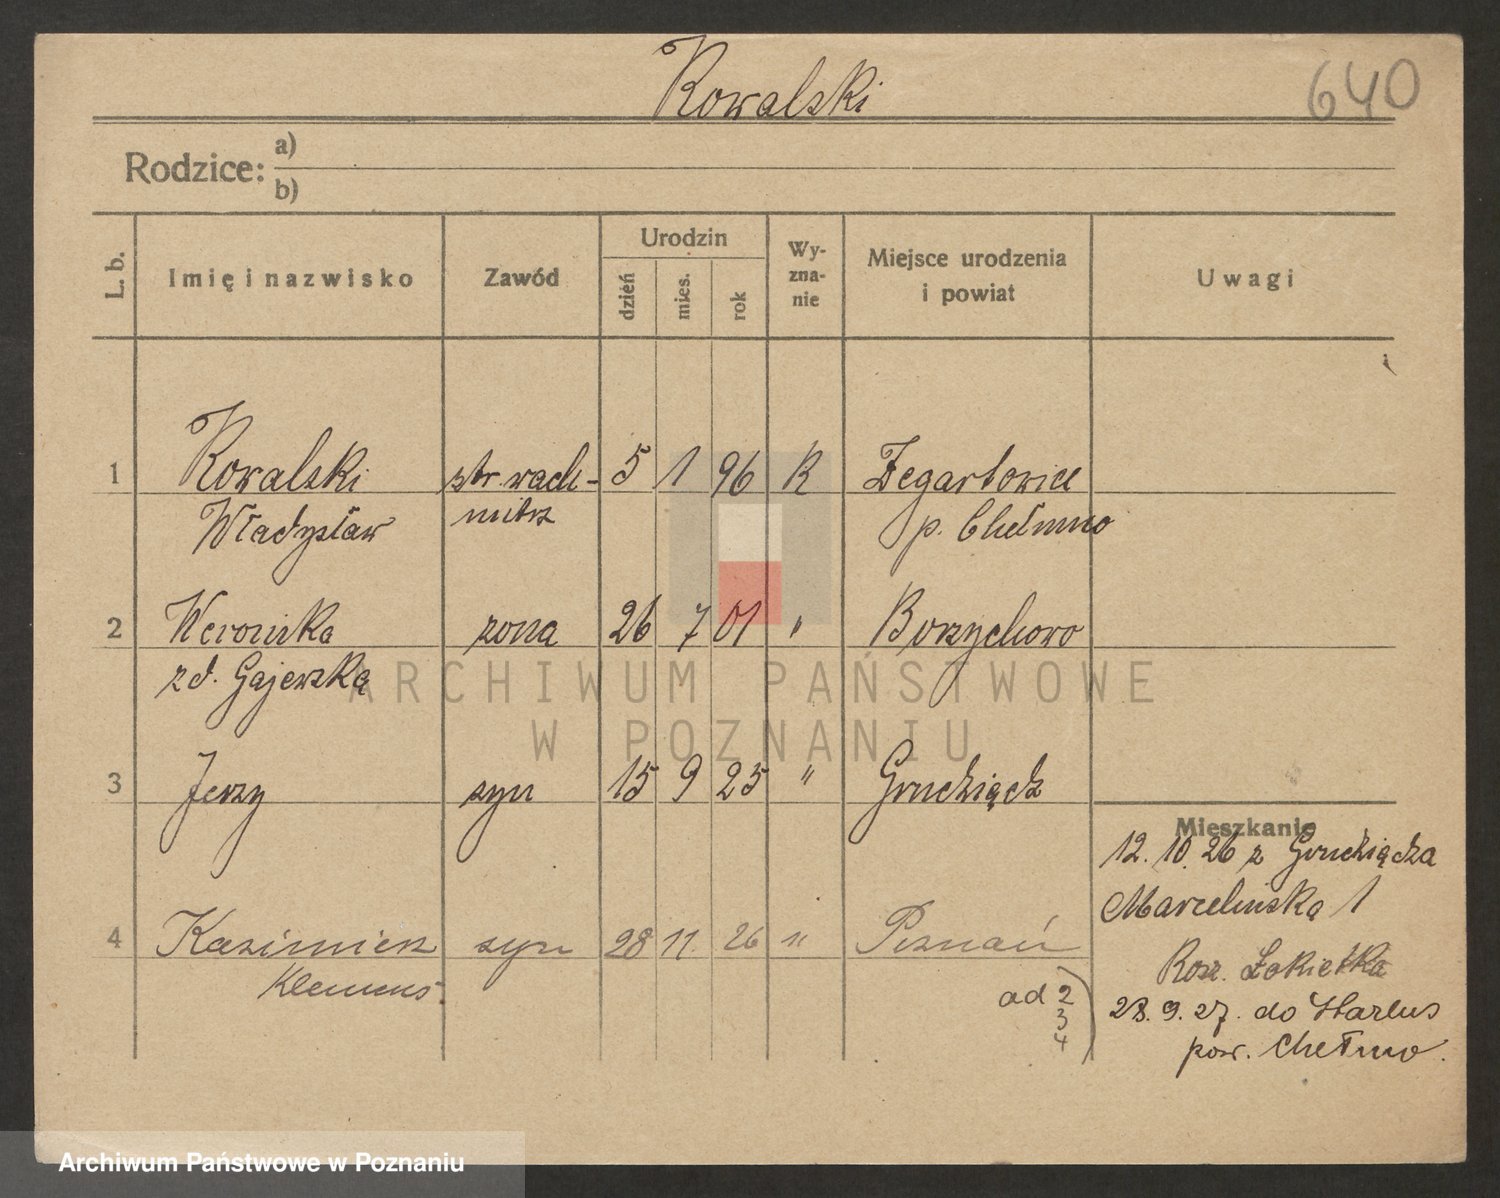 Kowalski
640
Rodzice: a)
b)
L. b.
Imię i nazwisko
Zawód
Urodzin
dzień
mies.
rok
Wy-
zna-
nie
Miejsce urodzenia
i powiat
Uwagi
1 Kowalski str. wach- 5 1 96 R Zegartowice
Władysław mistrz p. Chełmno
2 Weronika zona 26 7 01 " Borzychowo
z d. Gajewską
3 Jerzy syn 15 9 25 " Grudziądz
Mieszkanie
12. 10. 26 z Grudziądza
Marcelińska 1
4 Kazimierz syn 28 11. 26 " Poznań
Klemens.
Kosz. Łokietka
ad 2
3
4
28. 9. 27. do Starlus
pow. Chełmno.
ARCHIWUM PAŃSTWOWE
W POZNANIU
Archiwum Państwowe w Poznaniu